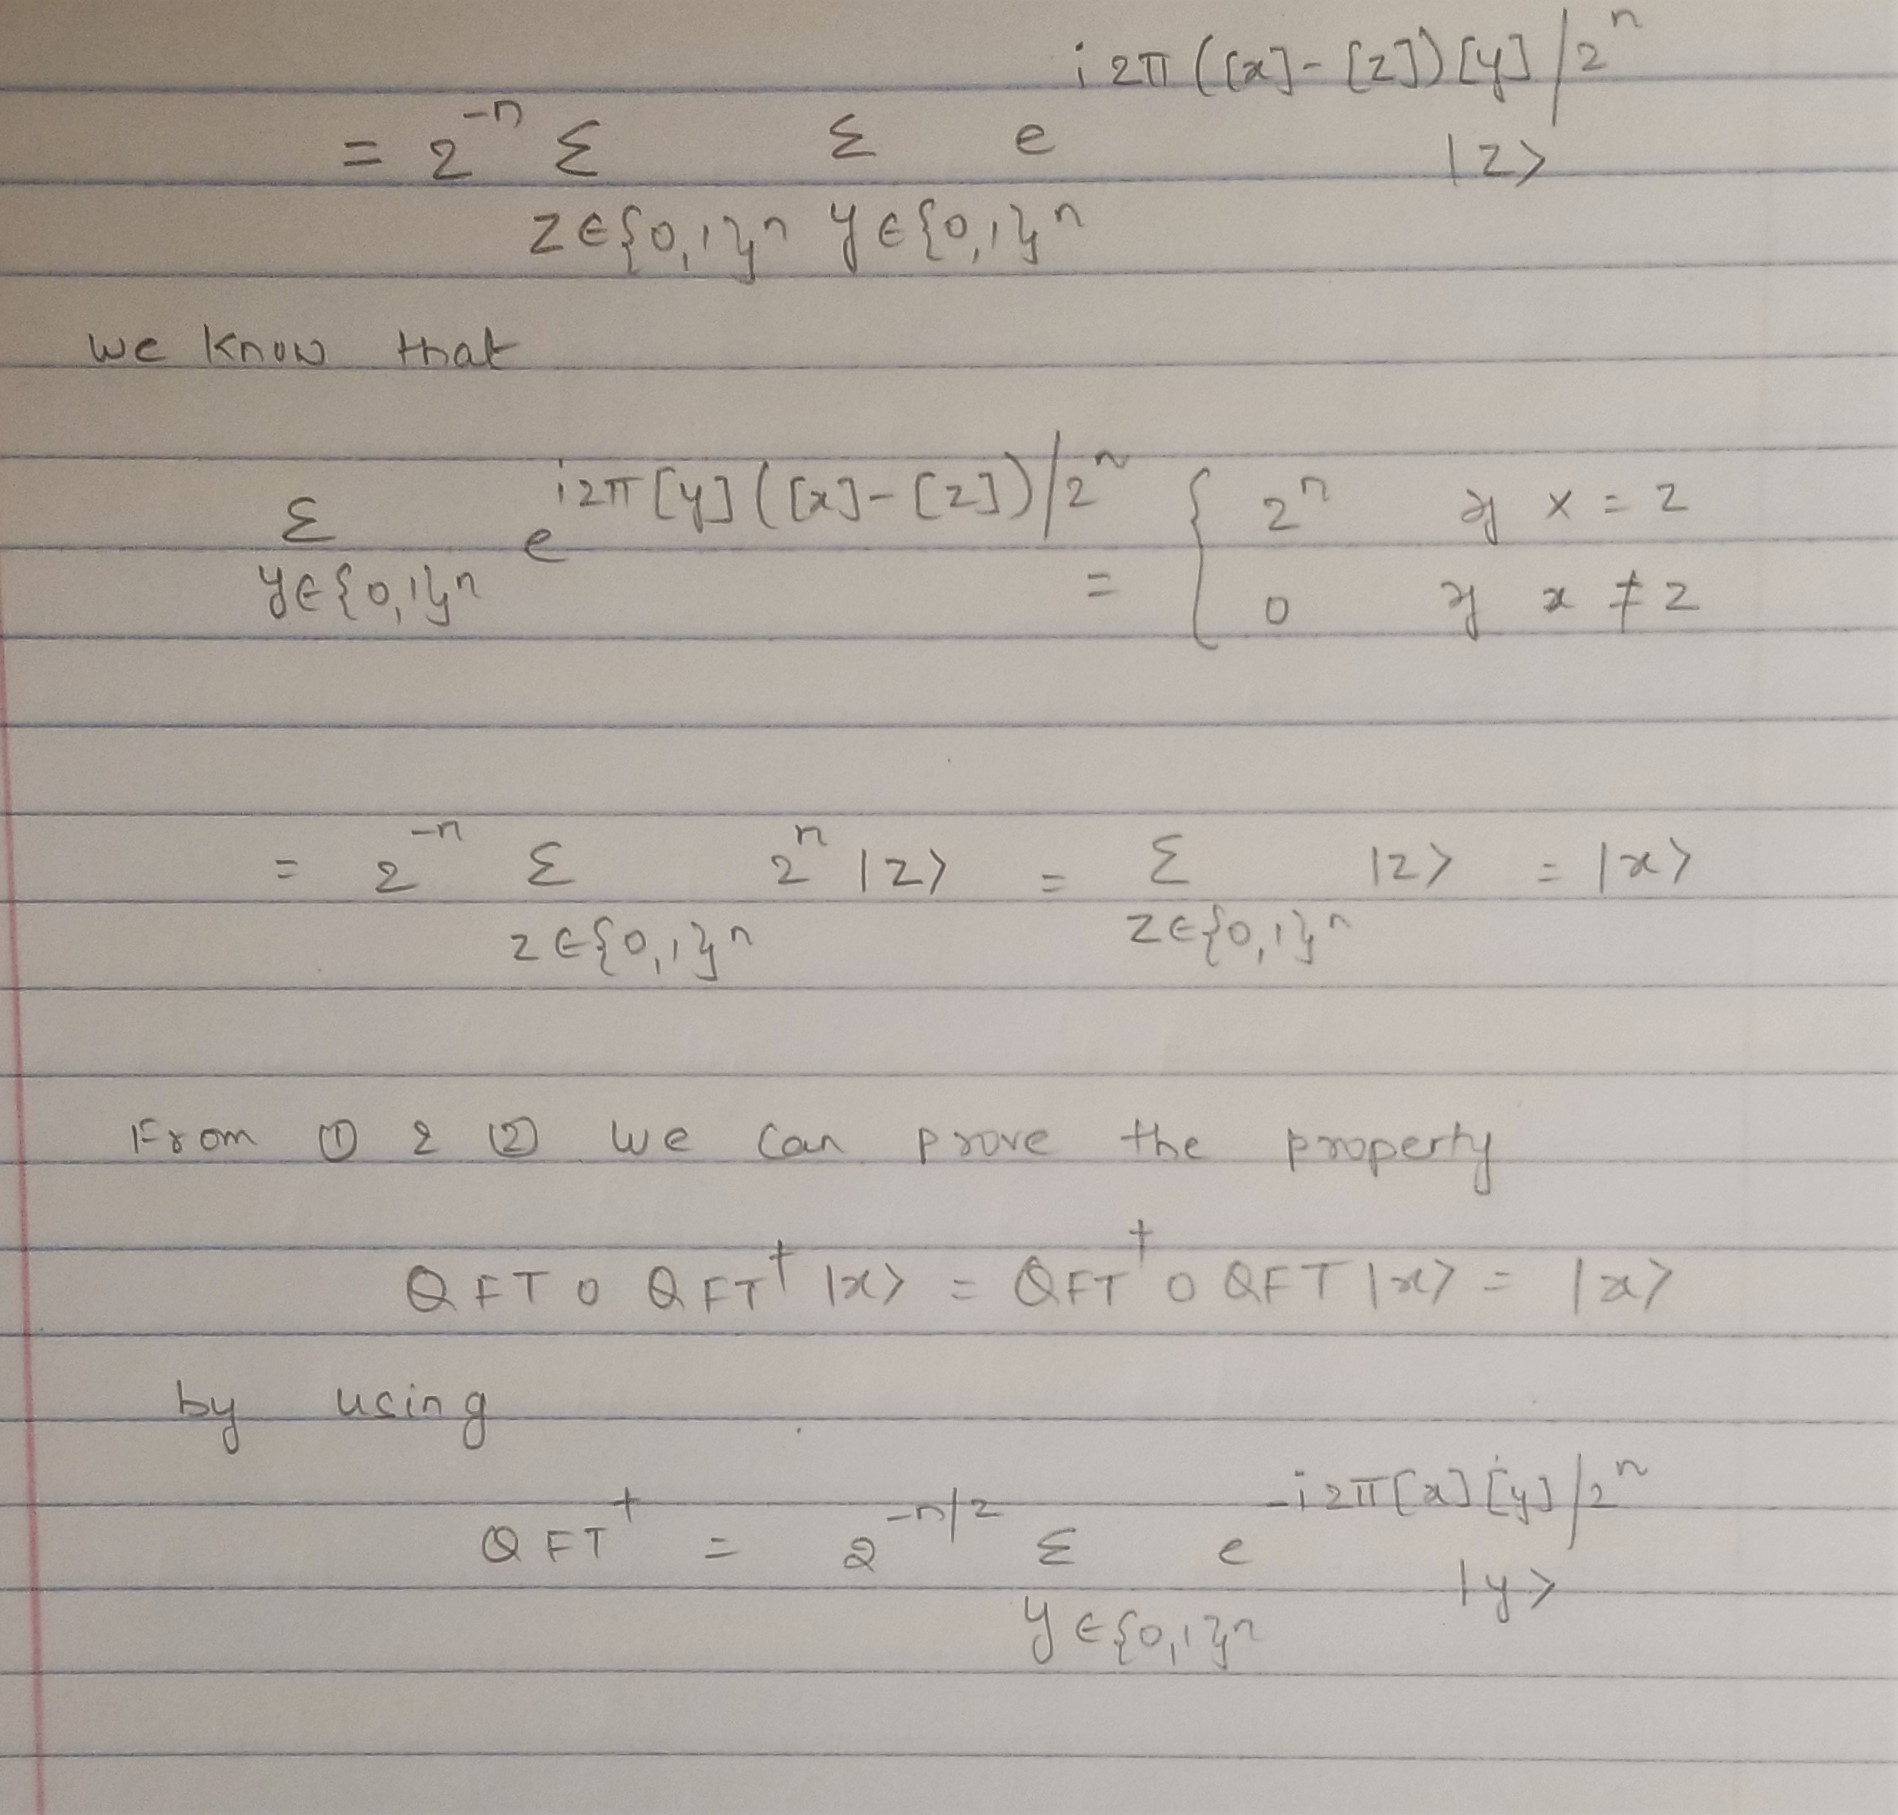 = 2^{-n} Σ_{z∈{0,1}^n} Σ_{y∈{0,1}^n} e^{i2π([x]-[z])[y]/2^n} |z>
we know that
Σ_{y∈{0,1}^n} e^{i2π[y]([x]-[z])/2^n} = { 2^n if x = z
0 if x ≠ z
= 2^{-n} Σ_{z∈{0,1}^n} 2^n |z> = Σ_{z∈{0,1}^n} |z> = |x>
From ① & ② we can prove the property
QFT o QFT^† |x> = QFT^† o QFT |x> = |x>
by using
QFT^† = 2^{-n/2} Σ_{y∈{0,1}^n} e^{-i2π[x][y]/2^n} |y>